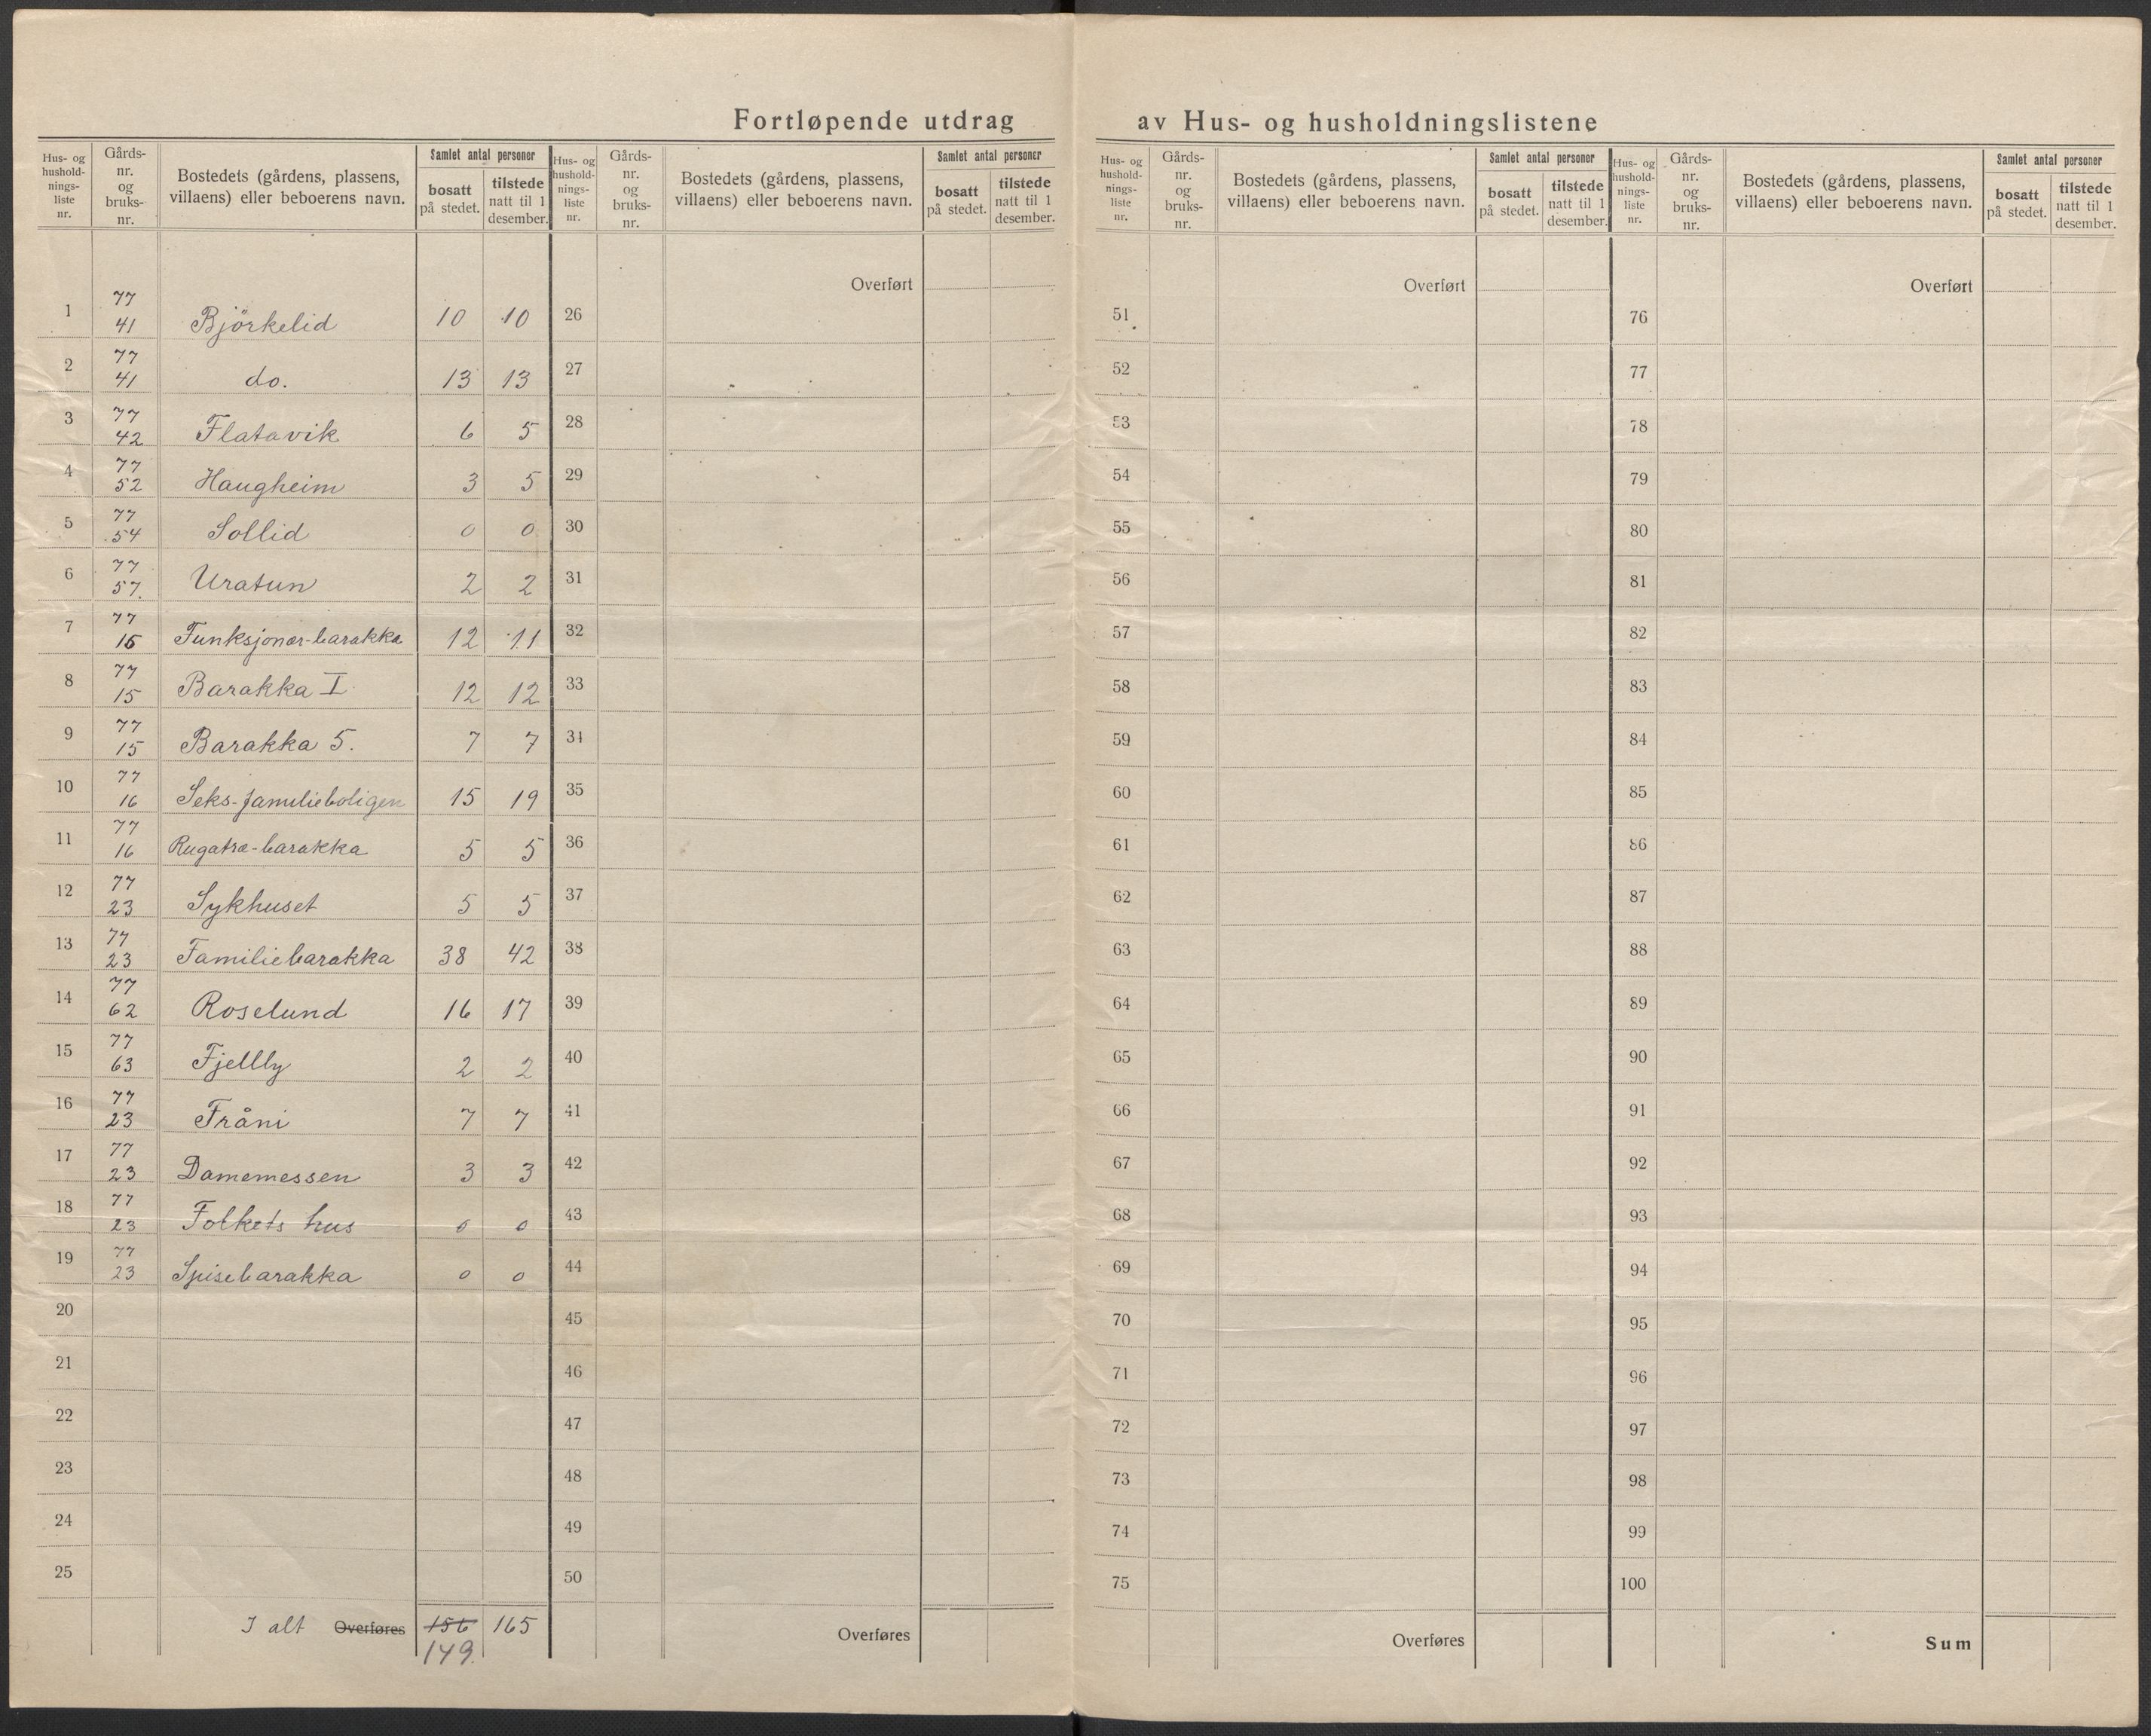 Fortløpende utdrag av Hus- og husholdningslistene
Hus- og hushold-nings-liste nr. | Gårds-nr. og bruks-nr. | Bostedets (gårdens, plassens, villaens) eller beboerens navn. | Samlet antal personer | bosatt på stedet. | tilstede natt til 1 desember.
1 77 41 Björkelid 10 10
2 77 41 do. 13 13
3 77 42 Flatavik 6 5
4 77 52 Haugheim 3 5
5 77 54 Sollid 0 0
6 77 57. Uratun 2 2
7 77 16 Funksjonær-barakka 12 11
8 77 15 Barakka I 12 12
9 77 15 Barakka 5. 7 7
10 77 16 Seks-familieboligen 15 19
11 77 16 -barakka 5 5
12 77 23 Sykhuset 5 5
13 77 23 Familiebarakka 38 42
14 77 62 Roselund 16 17
15 77 63 Fjellly 2 2
16 77 23 Fråni 7 7
17 77 23 Damemessen 3 3
18 77 23 Folkets hus 0 0
19 77 23 Spisebarakka 0 0
20
21
22
23
24
25
I alt Overføres 156 165
149.
Hus- og hushold-nings-liste nr. | Gårds-nr. og bruks-nr. | Bostedets (gårdens, plassens, villaens) eller beboerens navn. | Samlet antal personer | bosatt på stedet. | tilstede natt til 1 desember.
Overført
26
27
28
29
30
31
32
33
34
35
36
37
38
39
40
41
42
43
44
45
46
47
48
49
50
Overføres
Hus- og hushold-nings-liste nr. | Gårds-nr. og bruks-nr. | Bostedets (gårdens, plassens, villaens) eller beboerens navn. | Samlet antal personer | bosatt på stedet. | tilstede natt til 1 desember.
Overført
51
52
53
54
55
56
57
58
59
60
61
62
63
64
65
66
67
68
69
70
71
72
73
74
75
Overføres
Hus- og hushold-nings-liste nr. | Gårds-nr. og bruks-nr. | Bostedets (gårdens, plassens, villaens) eller beboerens navn. | Samlet antal personer | bosatt på stedet. | tilstede natt til 1 desember.
Overført
76
77
78
79
80
81
82
83
84
85
86
87
88
89
90
91
92
93
94
95
96
97
98
99
100
Sum